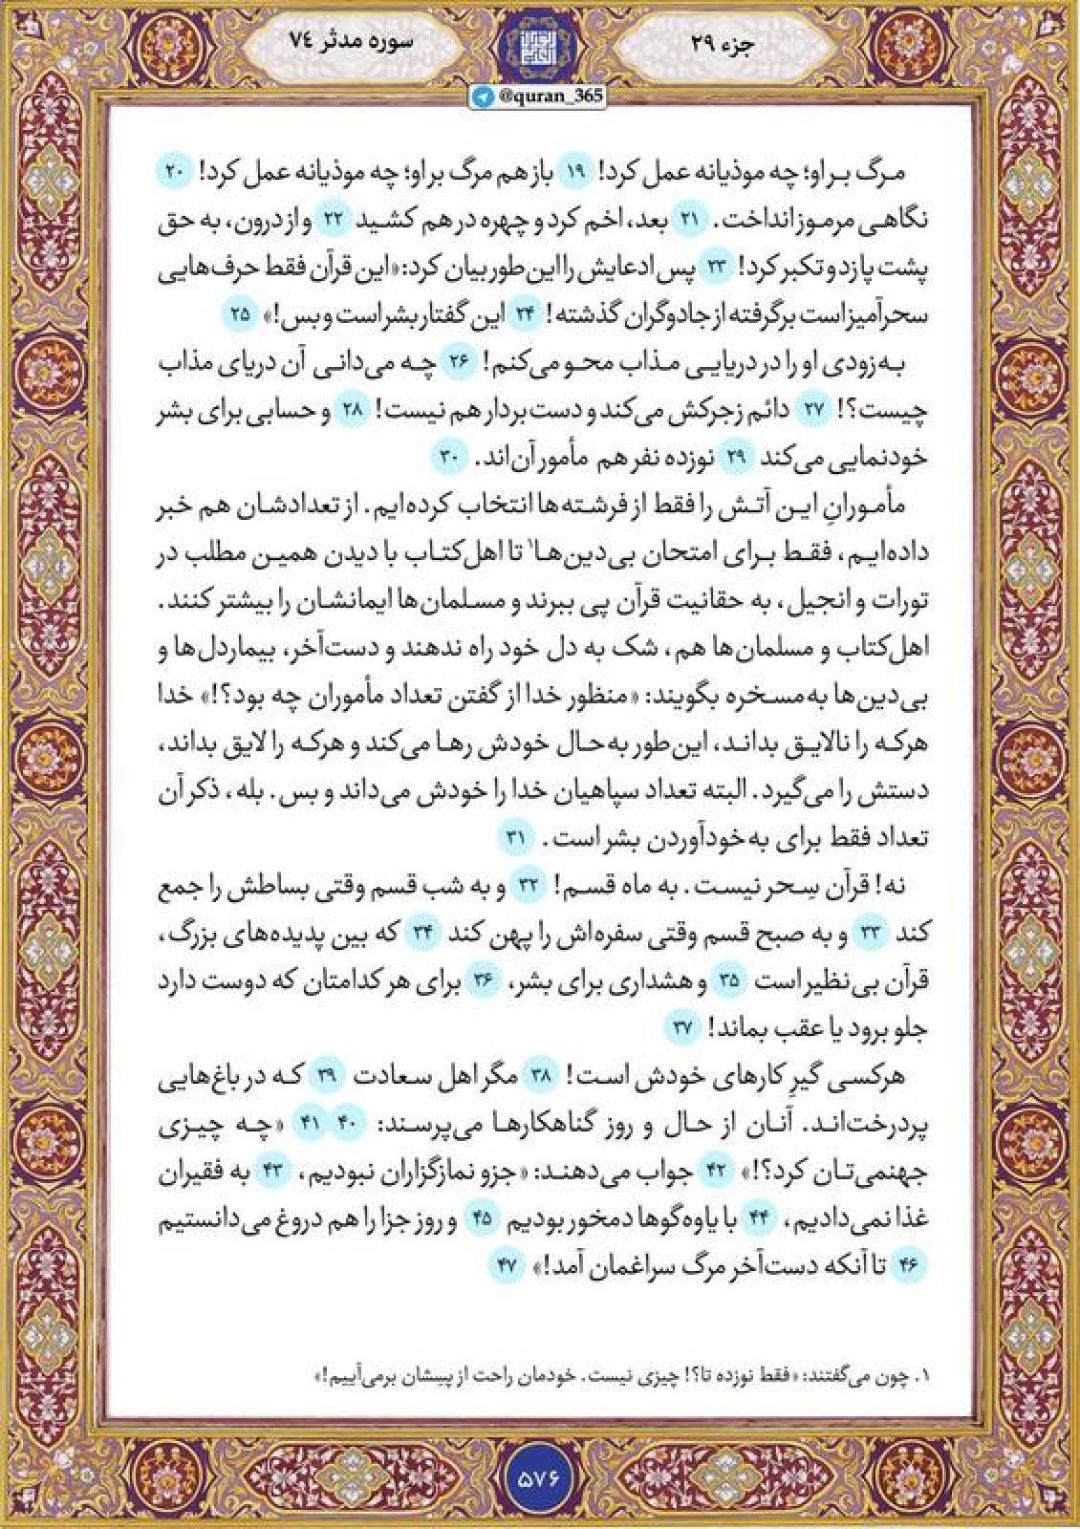 جزء ۲۹
سوره مدثر ۷۴
@quran_365
مرگ بر او؛ چه موذیانه عمل کرد! ۱۹ باز هم مرگ بر او؛ چه موذیانه عمل کرد! ۲۰
نگاهی مرموز انداخت. ۲۱ بعد، اخم کرد و چهره در هم کشید ۲۲ و از درون، به حق
پشت پا زد و تکبر کرد! ۲۳ پس ادعایش را این‌طور بیان کرد: «این قرآن فقط حرف‌هایی
سحرآمیز است برگرفته از جادوگران گذشته! ۲۴ این گفتار بشر است و بس!» ۲۵
به‌زودی او را در دریایی مذاب محو می‌کنم! ۲۶ چه می‌دانی آن دریای مذاب
چیست؟! ۲۷ دائم زجرکش می‌کند و دست‌بردار هم نیست! ۲۸ و حسابی برای بشر
خودنمایی می‌کند ۲۹ نوزده نفر هم مأمور آن‌اند. ۳۰
مأمورانِ این آتش را فقط از فرشته‌ها انتخاب کرده‌ایم. از تعدادشان هم خبر
داده‌ایم، فقط برای امتحان بی‌دین‌ها۱ تا اهل‌کتاب با دیدن همین مطلب در
تورات و انجیل، به حقانیت قرآن پی ببرند و مسلمان‌ها ایمانشان را بیشتر کنند.
اهل‌کتاب و مسلمان‌ها هم، شک به دل خود راه ندهند و دست‌آخر، بیماردل‌ها و
بی‌دین‌ها به‌مسخره بگویند: «منظور خدا از گفتن تعداد مأموران چه بود؟!» خدا
هرکه را نالایق بداند، این‌طور به‌حال خودش رها می‌کند و هرکه را لایق بداند،
دستش را می‌گیرد. البته تعداد سپاهیان خدا را خودش می‌داند و بس. بله، ذکر آن
تعداد فقط برای به‌خودآوردن بشر است. ۳۱
نه! قرآن سِحر نیست. به ماه قسم! ۳۲ و به شب قسم وقتی بساطش را جمع
کند ۳۳ و به صبح قسم وقتی سفره‌اش را پهن کند ۳۴ که بین پدیده‌های بزرگ،
قرآن بی‌نظیر است ۳۵ و هشداری برای بشر، ۳۶ برای هر کدامتان که دوست دارد
جلو برود یا عقب بماند! ۳۷
هرکسی گیرِ کارهای خودش است! ۳۸ مگر اهل سعادت ۳۹ که در باغ‌هایی
پردرخت‌اند. آنان از حال و روز گناهکارها می‌پرسند: ۴۰ ۴۱ «چه چیزی
جهنمی‌تان کرد؟!» ۴۲ جواب می‌دهند: «جزو نمازگزاران نبودیم، ۴۳ به فقیران
غذا نمی‌دادیم، ۴۴ با یاوه‌گوها دمخور بودیم ۴۵ و روز جزا را هم دروغ می‌دانستیم
۴۶ تا آنکه دست‌آخر مرگ سراغمان آمد!» ۴۷
۱. چون می‌گفتند: «فقط نوزده تا؟! چیزی نیست. خودمان راحت از پسِشان برمی‌آییم!»
۵۷۶